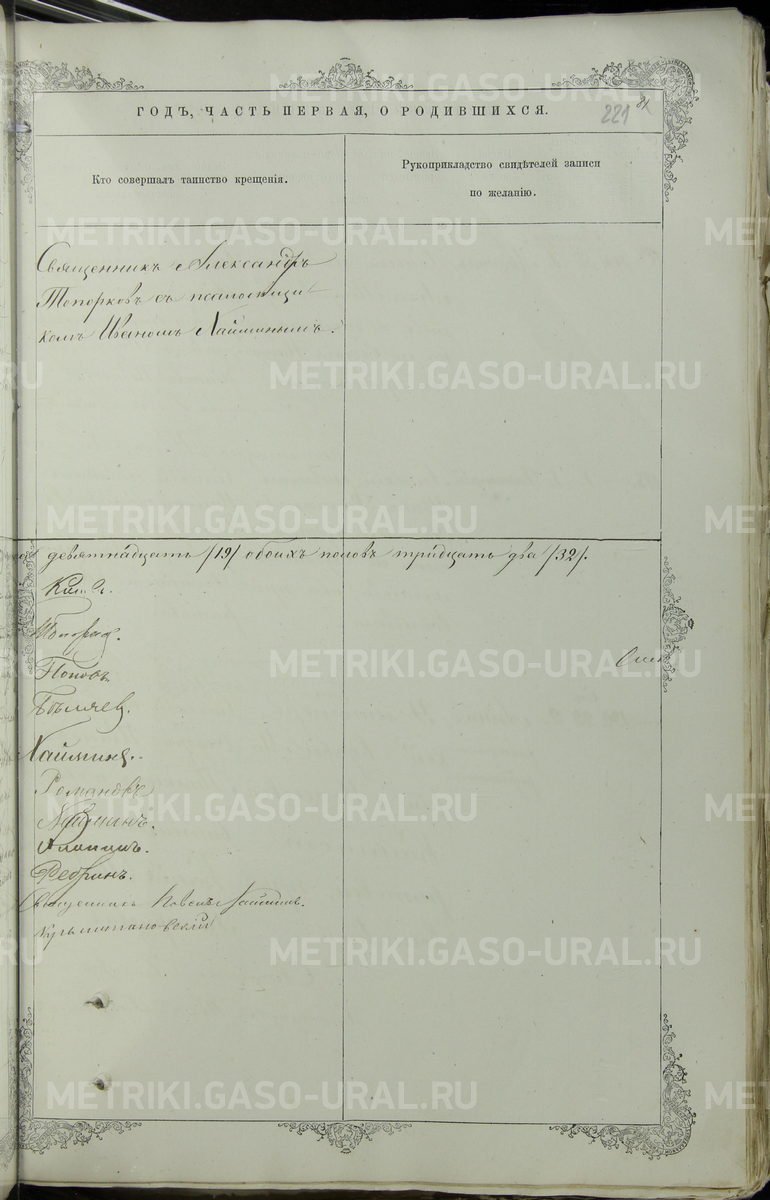 ГОДЪ, ЧАСТЬ ПЕРВАЯ, О РОДИВШИХСЯ.
221
Кто совершалъ таинство крещенія.
Рукоприкладство свидѣтелей записи
по желанію.
Священникъ Александръ
Топорковъ съ псаломщи-
комъ Иваномъ Лайминымъ.
девятнадцать /19/ обоихъ половъ тридцать два /32/.
Топорков.
Поповъ
Бѣляев.
Лаймине.
Романовъ
Лайминъ.
Ребринъ.
Священникъ Лайминъ.
METRIKI.GASO-URAL.RU